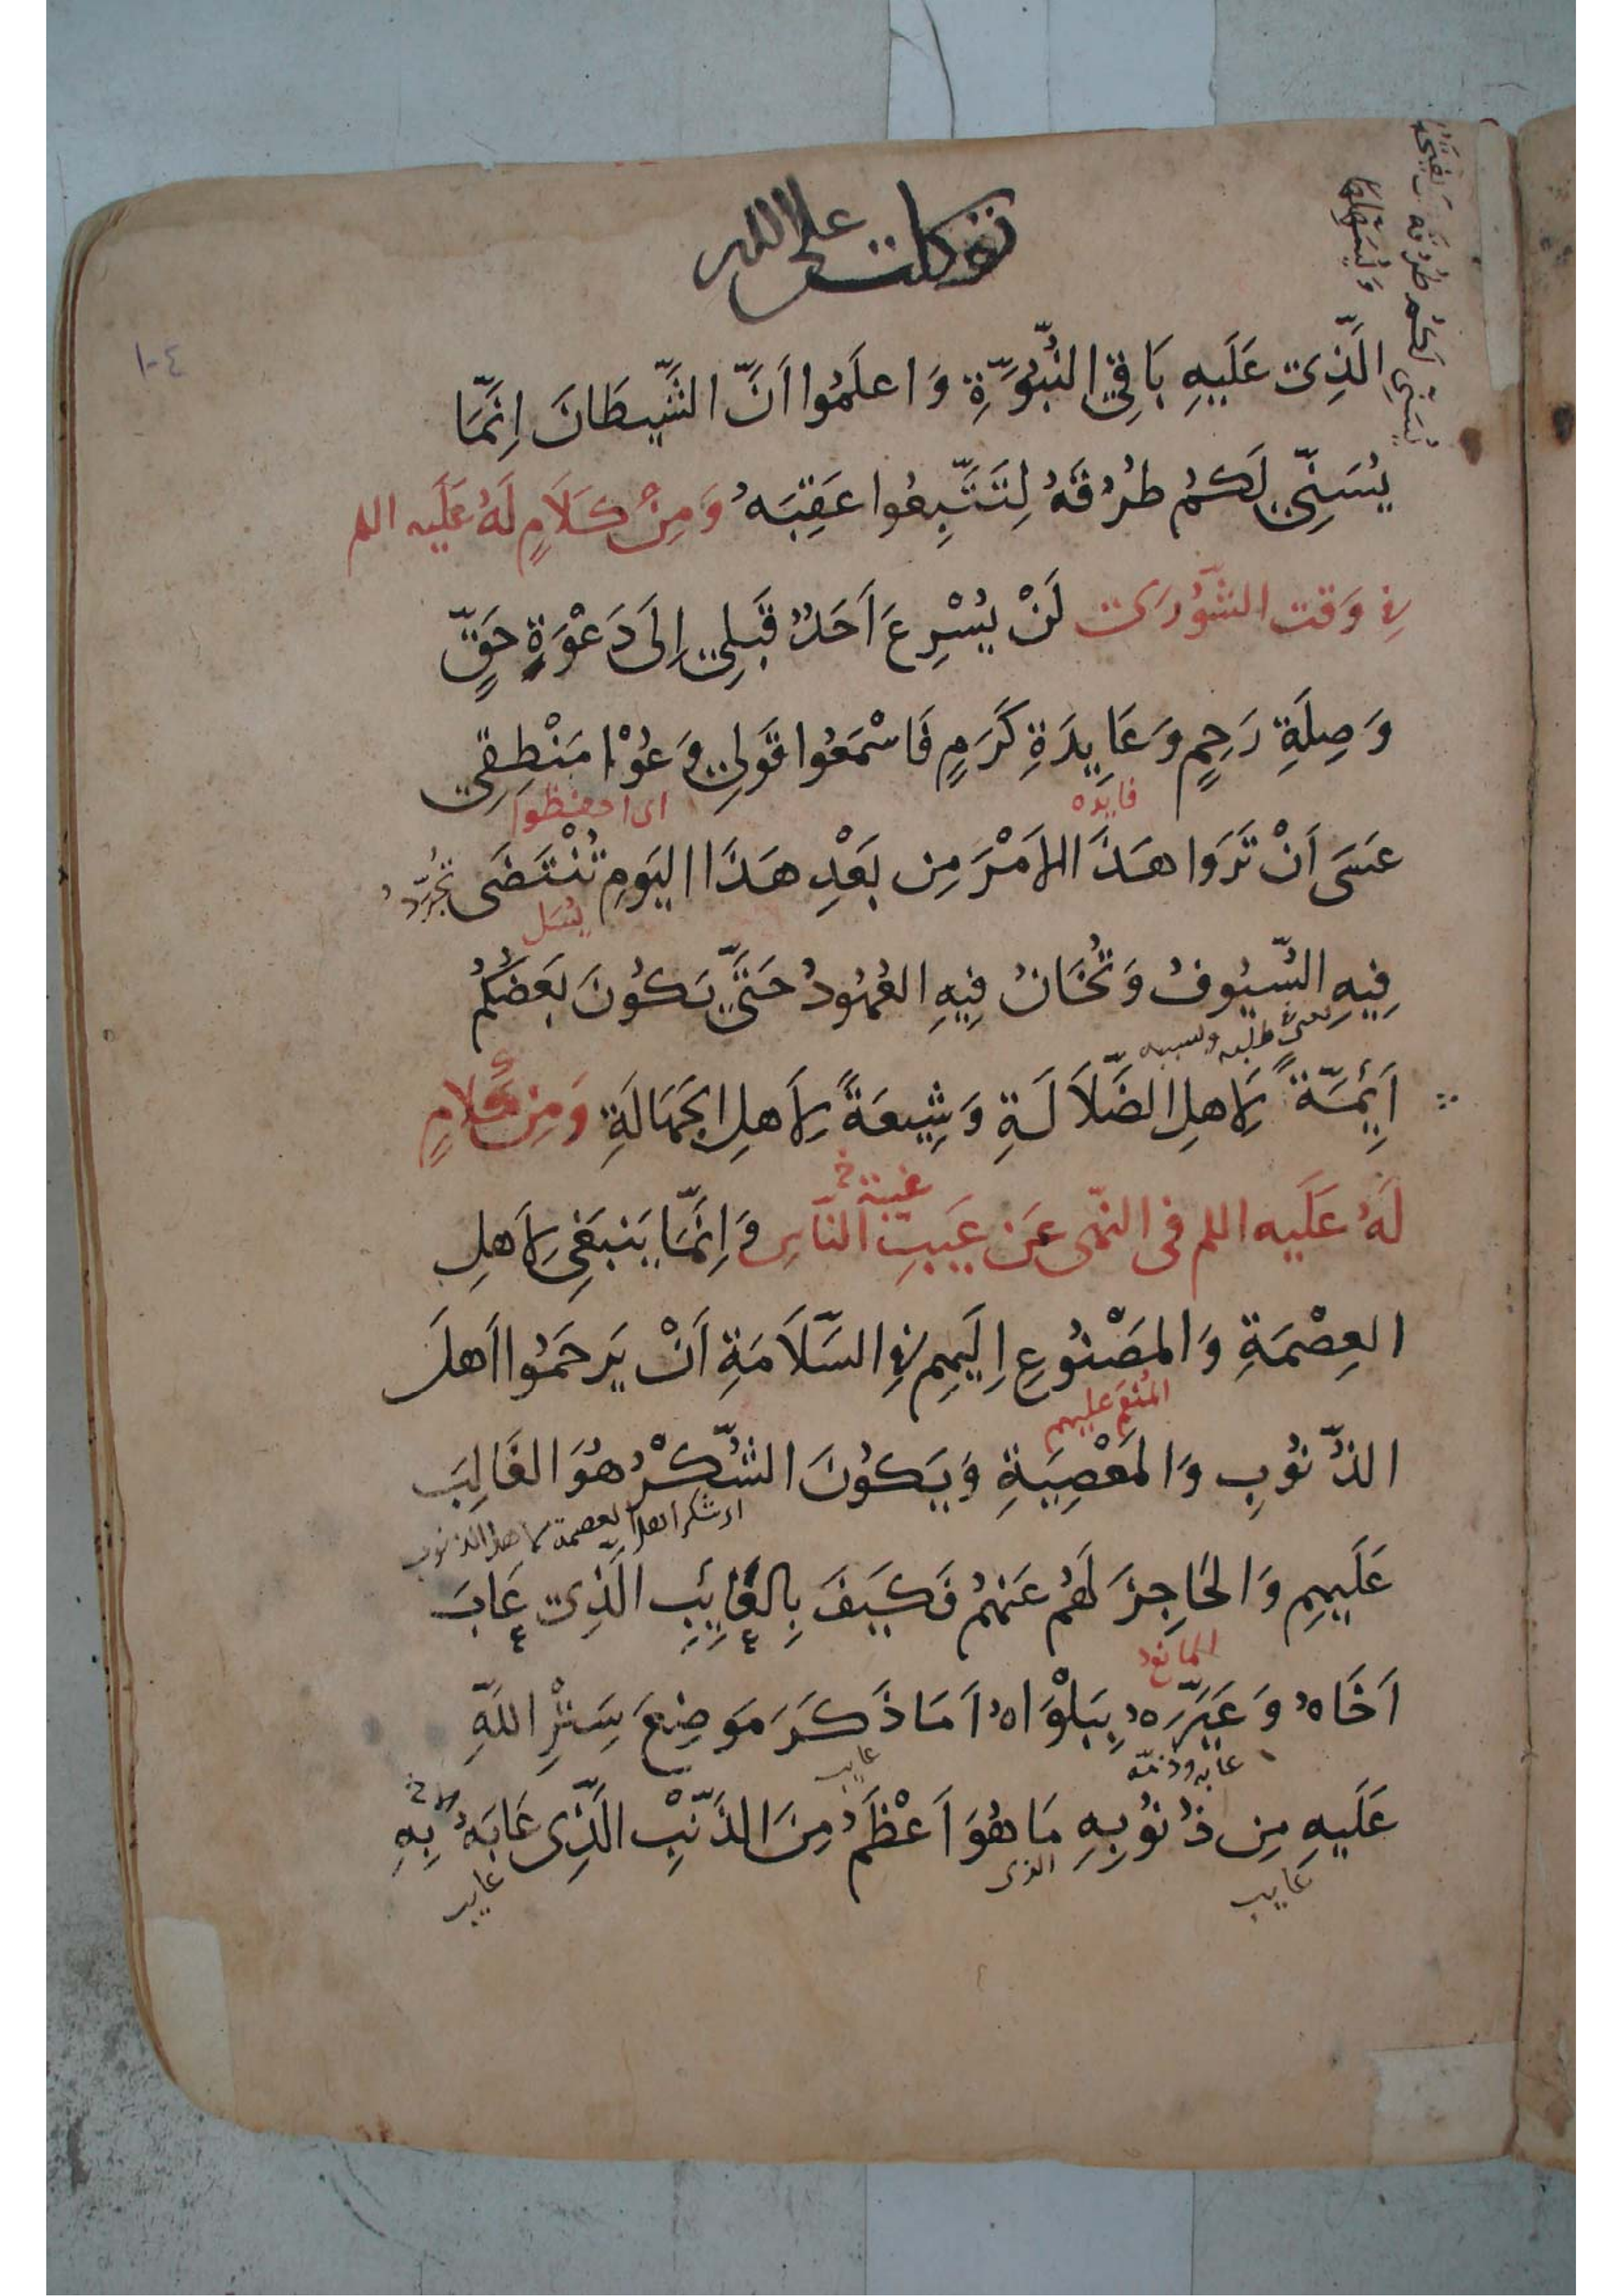 توكلت على الله
١٠٤
يُسَنِّي لَكُم طُرُقَهُ
الَّذِى عَلَيهِ بَاقِي النُّبُوَّةِ وَاعلَمُوا اَنَّ الشَّيطَانَ اِنَّمَا
يُسَنِّي لَكُم طُرُقَهُ لِتَتَّبِعُوا عَقِبَهُ وَمِنْ كَلَامٍ لَهُ عَلَيه اللم
فى وَقت الشّورَى لَنْ يُسْرِعَ اَحَدٌ قَبلِي اِلَى دَعْوَةِ حَقٍّ
وَصِلَةِ رَحِمٍ وَعَايِدَةِ كَرَمٍ فَاسْمَعُوا قَولِي وَعُوْا مَنْطِقِي
فايده
اى احفظوا
عَسَى اَنْ تَرَوا هَذَا الاَمْرَ مِن بَعْدِ هَذَا اليَومِ تُنْتَضَى
تُجَرَّدُ
يُسَل
فِيهِ السُّيُوفُ وَتُخَانُ فِيهِ العُهُودُ حَتَّى يَكُونَ بَعضُكُمْ
اَيِمَّةً لِاَهلِ الضَّلَالَةِ وَشِيعَةً لِاَهلِ الجَهَالَةِ وَمِن كَلَامٍ
لَهُ عَلَيه اللم فى النّهى عَن عَيبِ النّاسِ وَاِنَّمَا يَنبَغِى لِاَهلِ
غيبة خ
العِصْمَةِ وَالمَصْنُوعِ اِلَيهِم فِى السَّلَامَةِ اَنْ يَرحَمُوا اَهلَ
المُنعَم عليهم
الذُّنُوبِ وَالمَعْصِيَةِ وَيَكُونَ الشُّكْرُ هُوَ الغَالِبَ
عَلَيهِم وَالحَاجِزَ لَهُم عَنهُم فَكَيفَ بِالعَايِبِ الَّذِى عَابَ
المانع
اَخَاهُ وَعَيَّرَهُ بِبَلْوَاهُ اَمَا ذَكَرَ مَوضِعَ سَتْرِ اللّهِ
عابه وذمّه
عايب
عَلَيهِ مِن ذُنُوبِهِ مَا هُوَ اَعْظَمُ مِنَ الذَّنْبِ الَّذِى عَابَهُ بِهِ
عايب
الذى
عايب